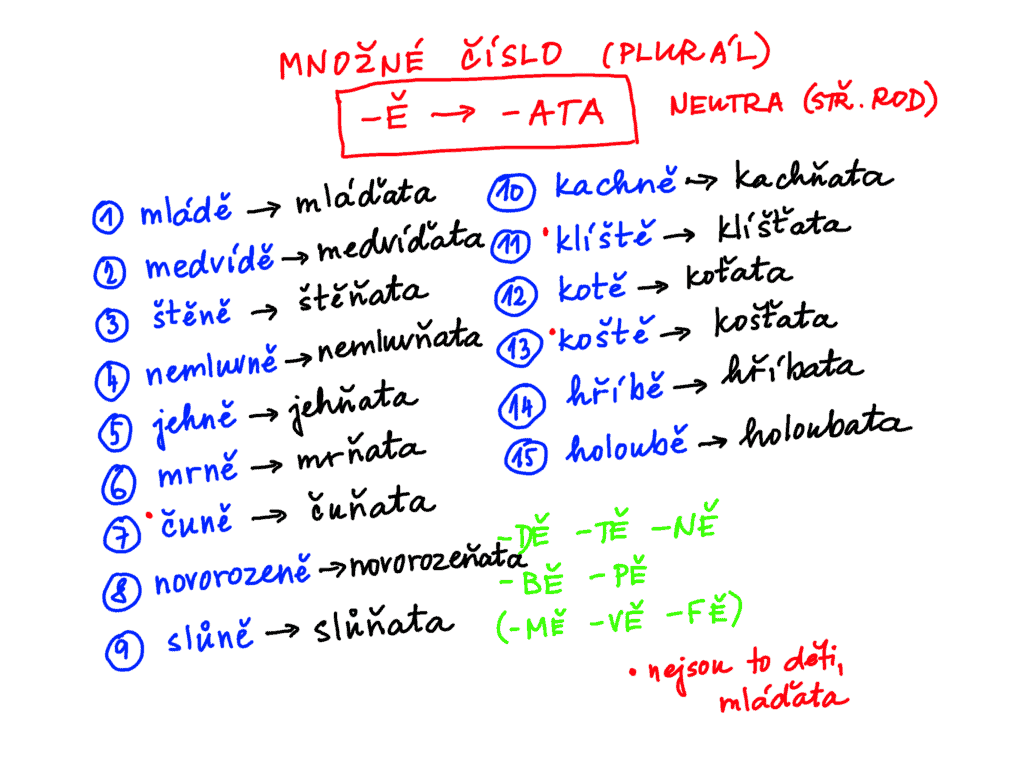 MNOŽNÉ ČÍSLO (PLURÁL)
-Ě → -ATA
NEUTRA (STŘ. ROD)
1 mládě → mláďata
2 medvídě → medvíďata
3 štěně → štěňata
4 nemluvně → nemluvňata
5 jehně → jehňata
6 mrně → mrňata
7 • čuně → čuňata
8 novorozeně → novorozeňata
9 slůně → slůňata
10 kachně → kachňata
11 • klíště → klíšťata
12 kotě → koťata
13 • koště → košťata
14 hříbě → hříbata
15 holoubě → holoubata
-DĚ -TĚ -NĚ
-BĚ -PĚ
(-MĚ -VĚ -FĚ)
• nejsou to děti,
mláďata